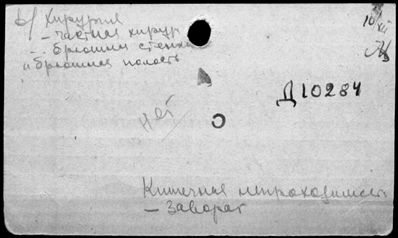 б/ Хирургия
- частная хирур
- брюшная стенка
и брюшная полость
10
XII
Д10284
нет
Кишечная непроходимость
- Заворот